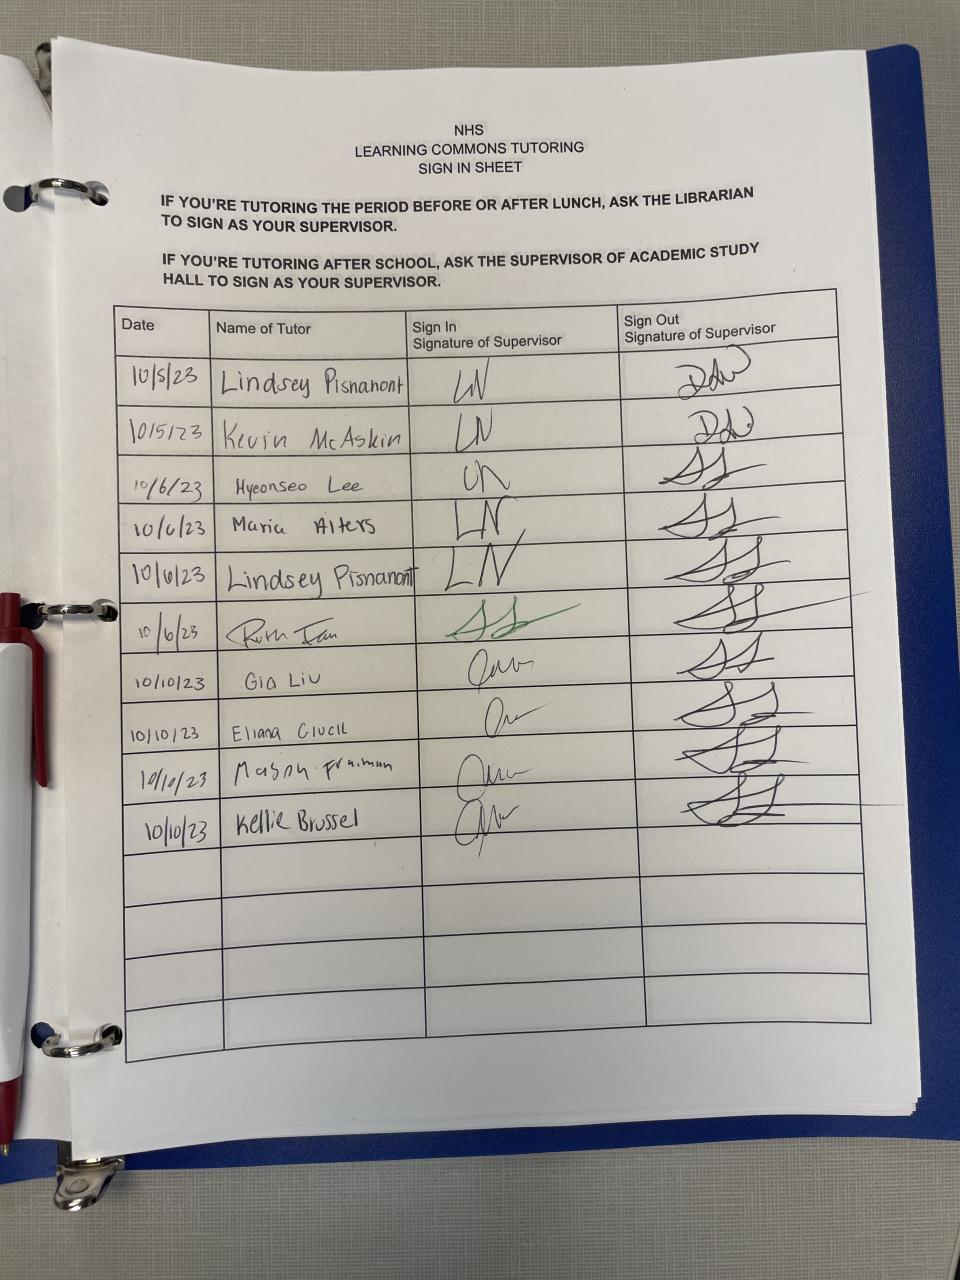 NHS
LEARNING COMMONS TUTORING
SIGN IN SHEET
IF YOU'RE TUTORING THE PERIOD BEFORE OR AFTER LUNCH, ASK THE LIBRARIAN
TO SIGN AS YOUR SUPERVISOR.
IF YOU'RE TUTORING AFTER SCHOOL, ASK THE SUPERVISOR OF ACADEMIC STUDY
HALL TO SIGN AS YOUR SUPERVISOR.
Date Name of Tutor Sign In Sign Out
Signature of Supervisor Signature of Supervisor
10/5/23 Lindsey Pisnanont LN
10/5/23 Kevin McAskin LN
10/6/23 Hyeonseo Lee
10/6/23 Maria Alters LN
10/6/23 Lindsey Pisnanont LN
10/6/23 Ruth
10/10/23 Gia Liu
10/10/23 Eliana
10/10/23 Mason Fraiman
10/10/23 Kellie Brussel